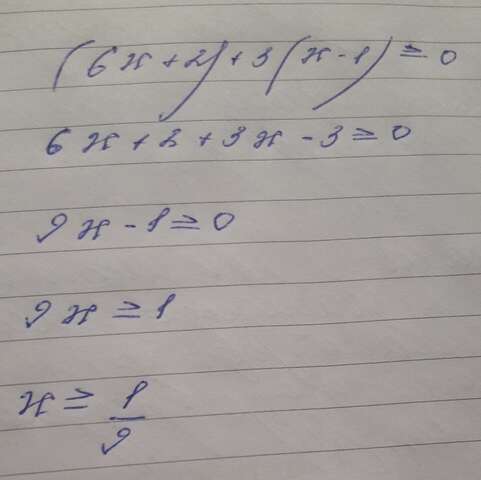 (6x+2)+3(x-1)≥0
6x+2+3x-3≥0
9x-1≥0
9x≥1
x≥1/9